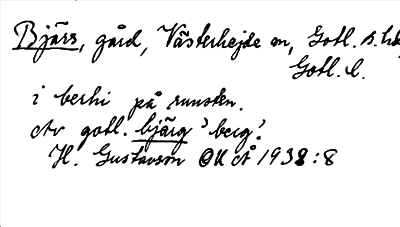 Bjärs, gård, Västerhejde sn, Gotl. s. hd
Gotl. l.
i berhi på runsten.
Av gotl. bjärg 'berg'.
H. Gustavson OUÅ 1938:8